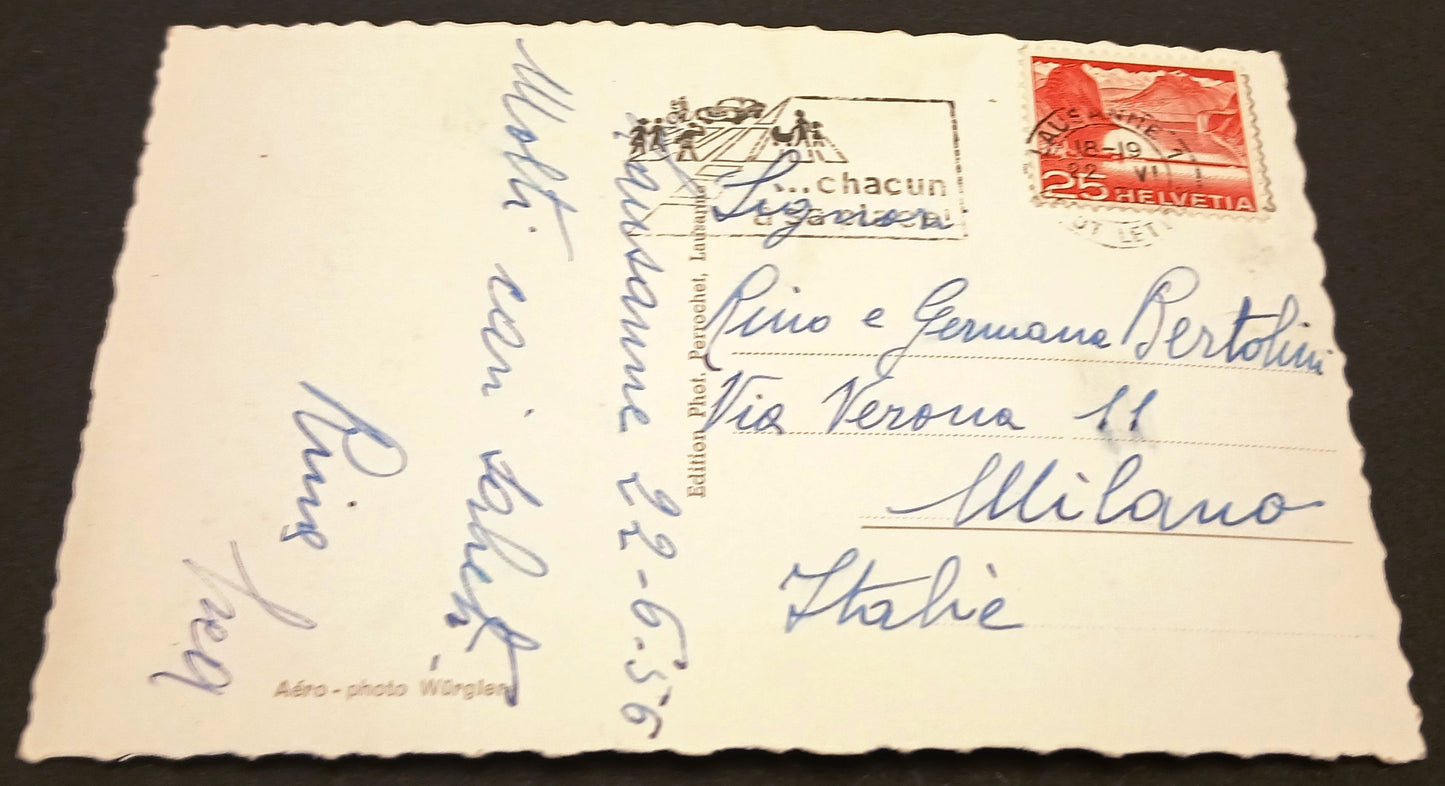 Lausanne 22-6.56
Molti cari saluti
Aéro-photo Würgler
Edition Phot. Perrochet, Lausanne
...chacun
à sa place!
LAUSANNE 1
18-19
22 VI
25 HELVETIA
Signori
Rino e Germana Bertolini
Via Verona 11
Milano
Italiè